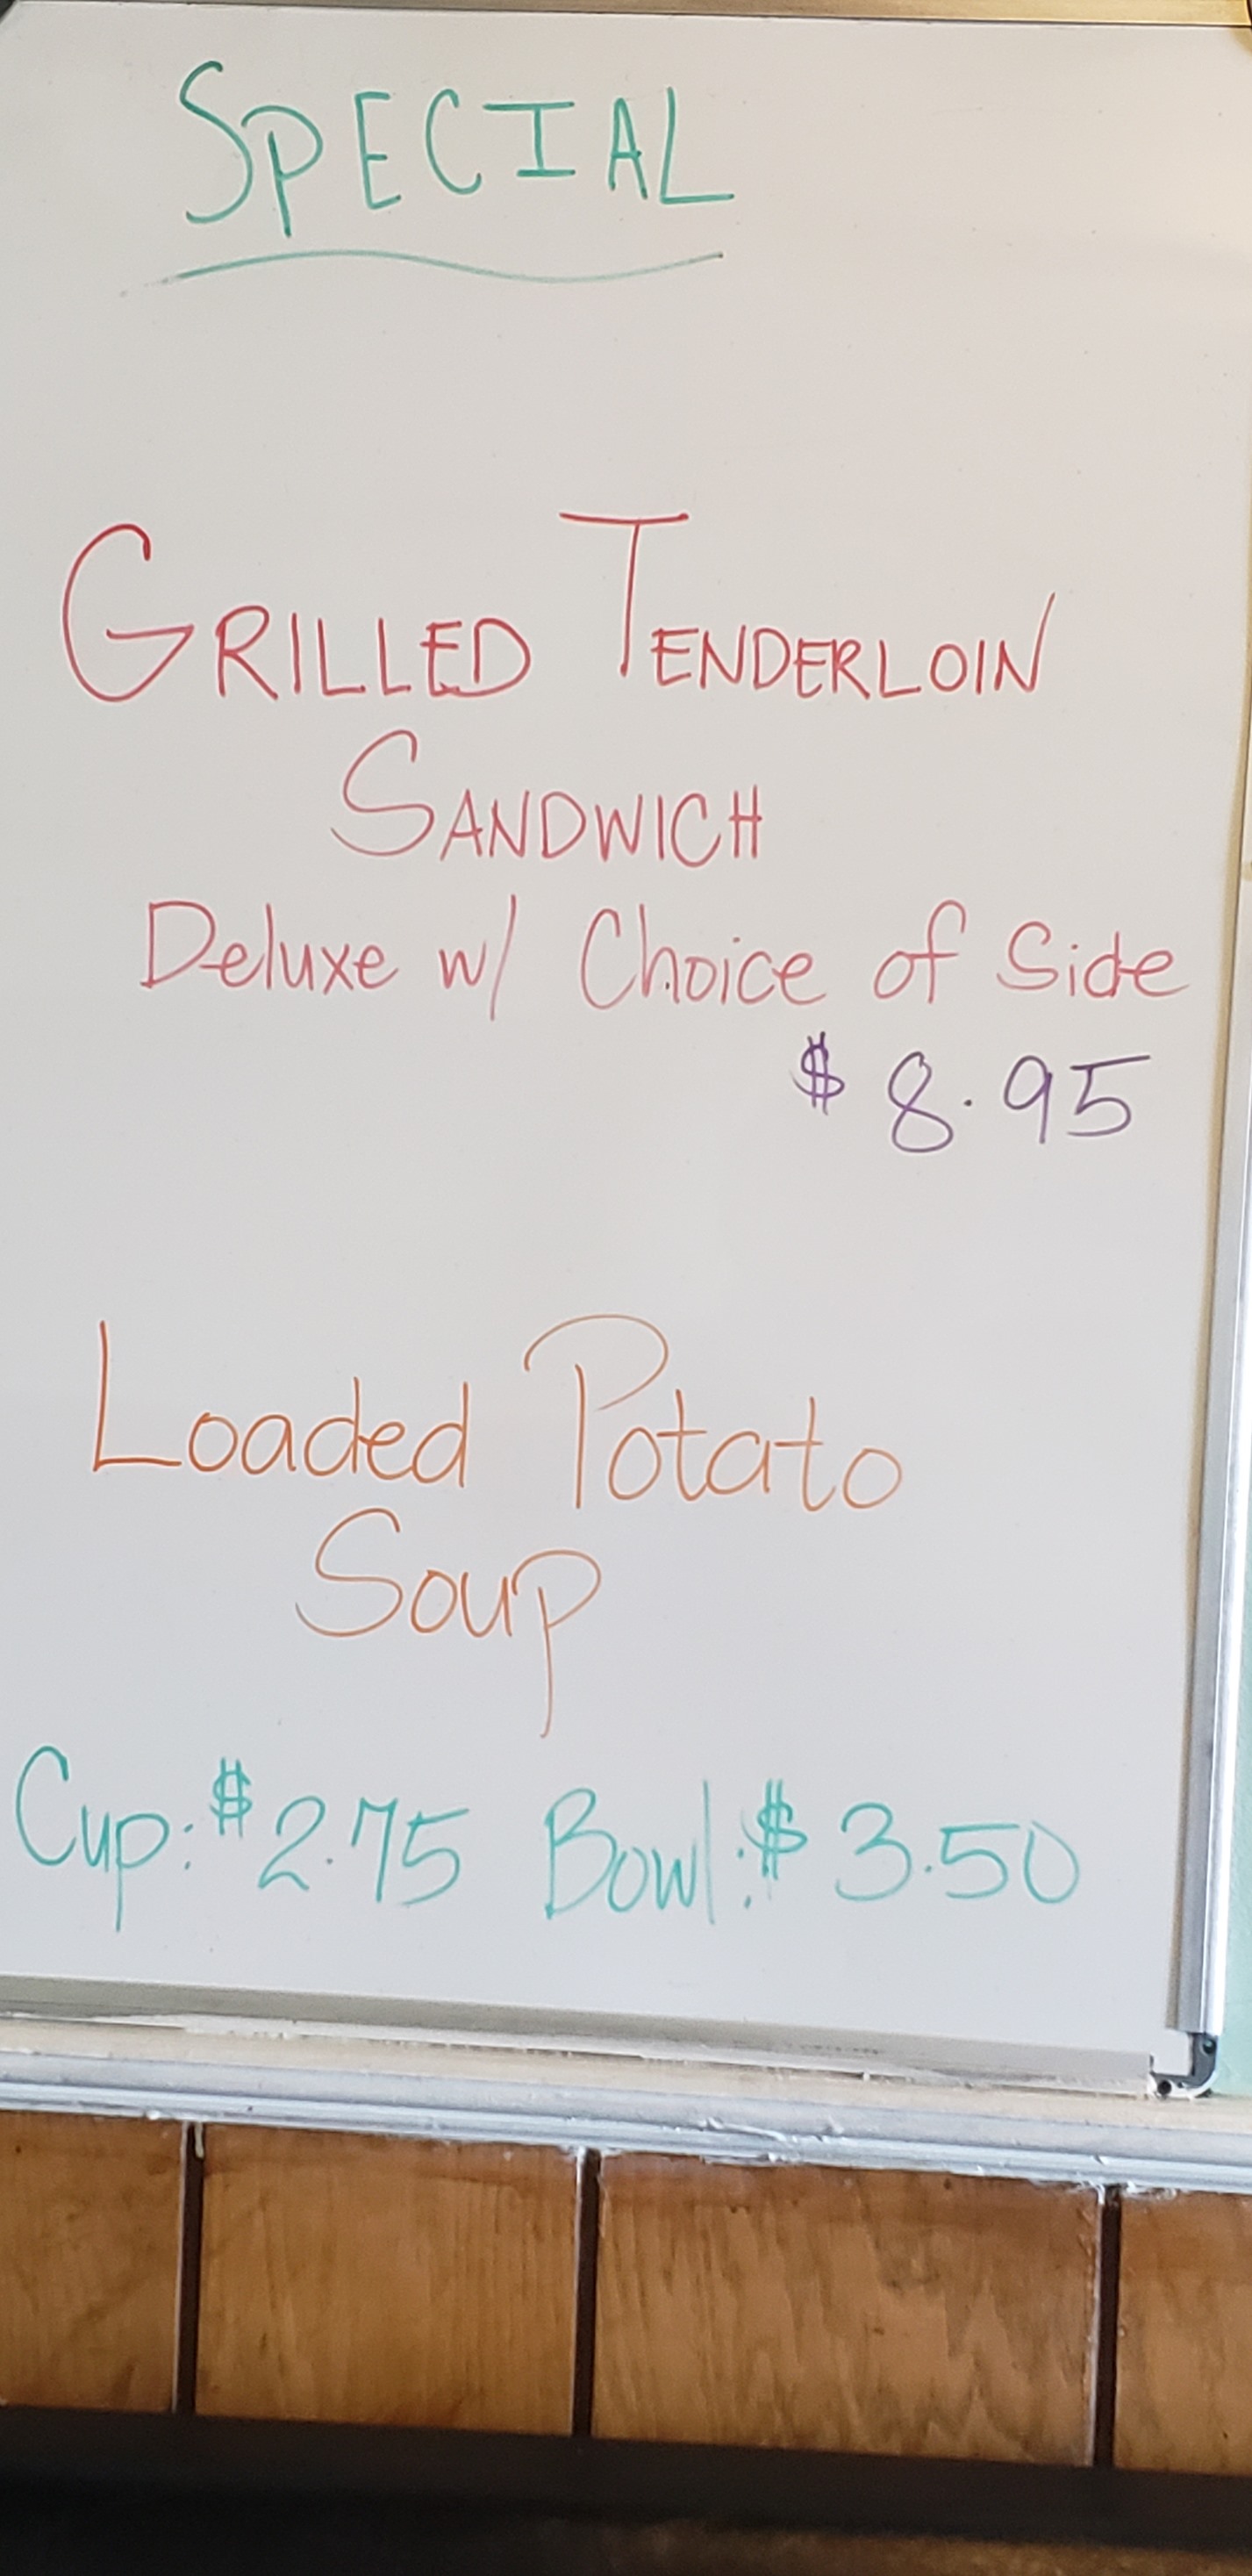 SPECIAL
GRILLED TENDERLOIN
SANDWICH
Deluxe w/ Choice of Side
$ 8.95
Loaded Potato
Soup
Cup: $2.75 Bowl: $3.50